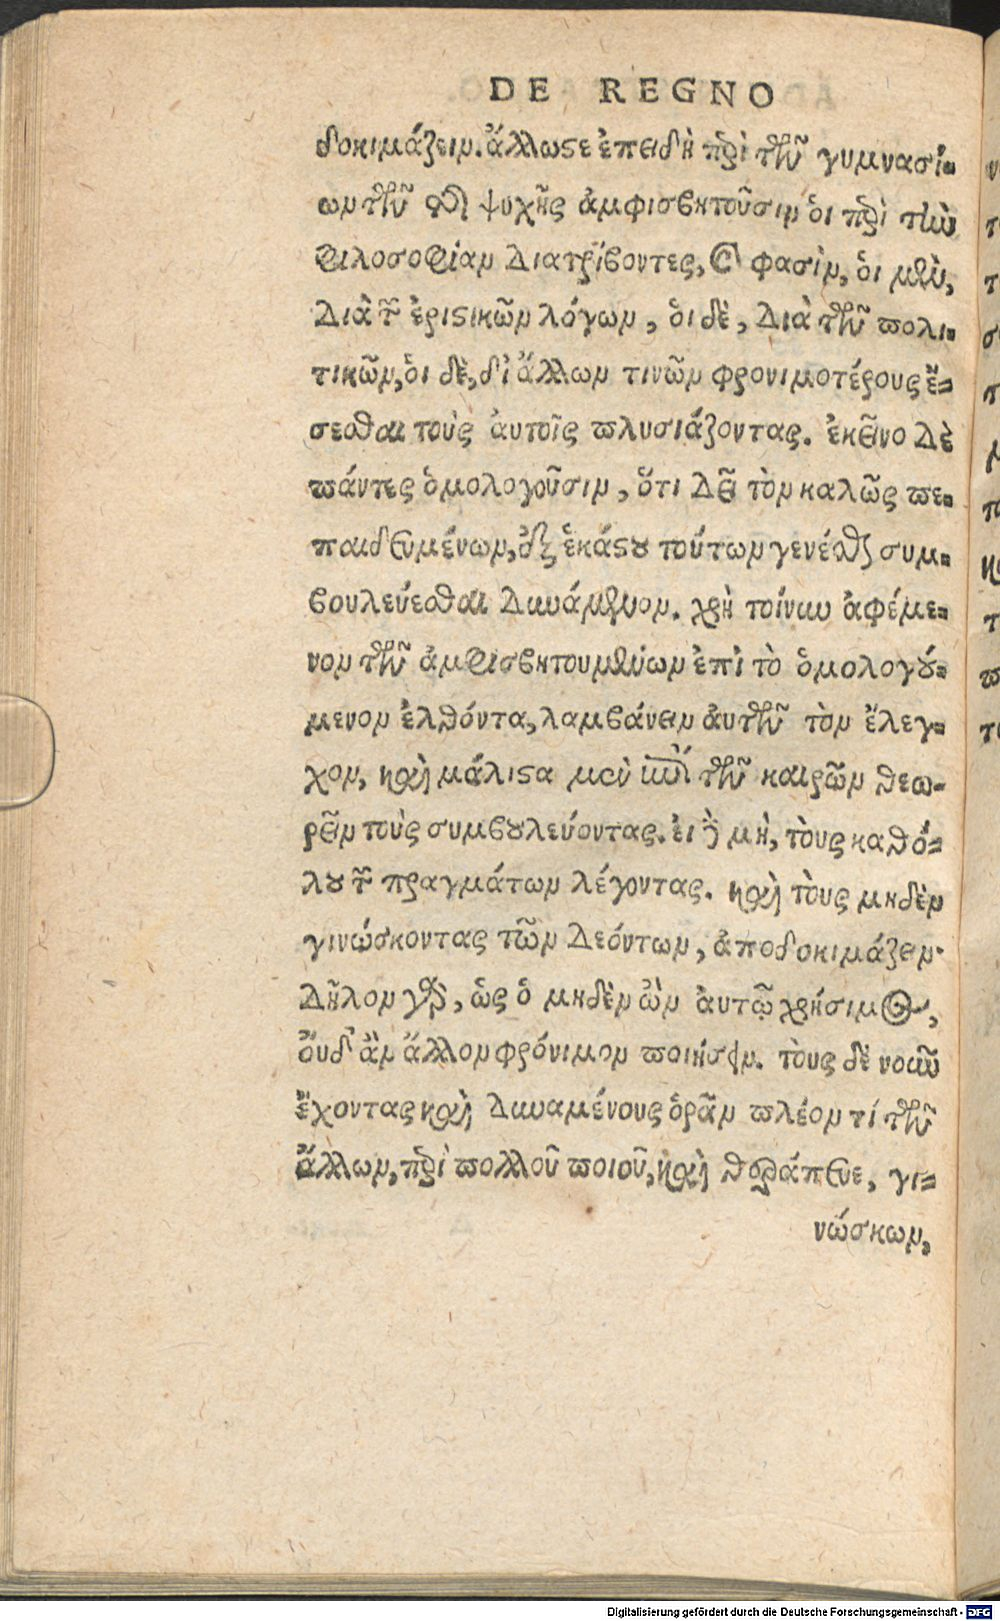 DE REGNO
δοκιμάζειν. ἄλλωστε ἐπειδὴ περὶ τῶν γυμνασί-
ων τῶν τῆς ψυχῆς ἀμφισβητοῦσιν ὁι περὶ τὴν
φιλοσοφίαν διατρίβοντες, καὶ φασὶν, ὁι μὲν,
διὰ τῶν ἐριστικῶν λόγων, ὁι δὲ, διὰ τῶν πολι-
τικῶν, ὁι δὲ, δι ἄλλων τινῶν φρονιμοτέρους ἔ-
σεσθαι τοὺς ἀυτοῖς πλυσιάζοντας. ἐκεῖνο δὲ
πάντες ὁμολογοῦσιν, ὅτι δεῖ τὸν καλῶς πε-
παιδευμένων, ἐξ ἑκάστου τούτων γενέσθαι συμ-
βουλεύεσθαι δυνάμενον. χρὴ τοίνυν ἀφέμε-
νον τῶν ἀμφισβητουμένων ἐπὶ τὸ ὁμολογού-
μενον ἐλθόντα, λαμβάνειν ἀυτῶν τὸν ἔλεγ-
χον, καὶ μάλιστα μὲν ἐπὶ τῶν καιρῶν θεω-
ρεῖν τοὺς συμβουλεύοντας. ἐι δὲ μὴ, τὸυς καθό-
λου τῶν πραγμάτων λέγοντας. καὶ τὸυς μηδὲν
γινώσκοντας τῶν δεόντων, ἀποδοκιμάζειν.
δῆλον γὰρ, ὡς ὁ μηδὲν ὢν ἀυτῷ χρήσιμος,
ὀυδ' ἂν ἄλλον φρόνιμον ποιήσειεν. τὸυς δὲ νοῦν
ἔχοντας καὶ δυναμένους ὁρᾶν πλέον τί τῶν
ἄλλων, περὶ πολλοῦ ποιοῦ, καὶ θεράπευε, γι-
νώσκων,
Digitalisierung gefördert durch die Deutsche Forschungsgemeinschaft - DFG